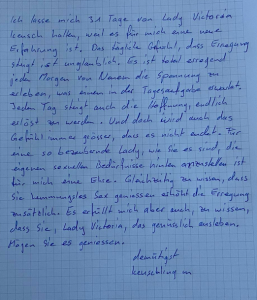 Ich lasse mich 31 Tage von Lady Victoria
keusch halten, weil es für mich eine neue
Erfahrung ist. Das tägliche Gefühl, dass Erregung
steigt ist unglaublich. Es ist total erregend
jeden Morgen von Neuem die Spannung zu
erleben, was einen in der Tagesaufgabe erwartet.
Jeden Tag steigt auch die Hoffnung, endlich
erlöst zu werden. Und doch wird auch das
Gefühl immer grösser, dass es nicht endet. Für
eine so bezaubernde Lady, wie Sie es sind, die
eigenen sexuellen Bedürfnisse hinten anzustellen ist
für mich eine Ehre. Gleichzeitig zu wissen, dass
Sie hemmungslos Sex geniessen erhöht die Erregung
zusätzlich. Es erfüllt mich aber auch, zu wissen,
dass Sie, Lady Victoria, das genüsslich ausleben.
Mögen Sie es geniessen.
demütigst
keuschling m